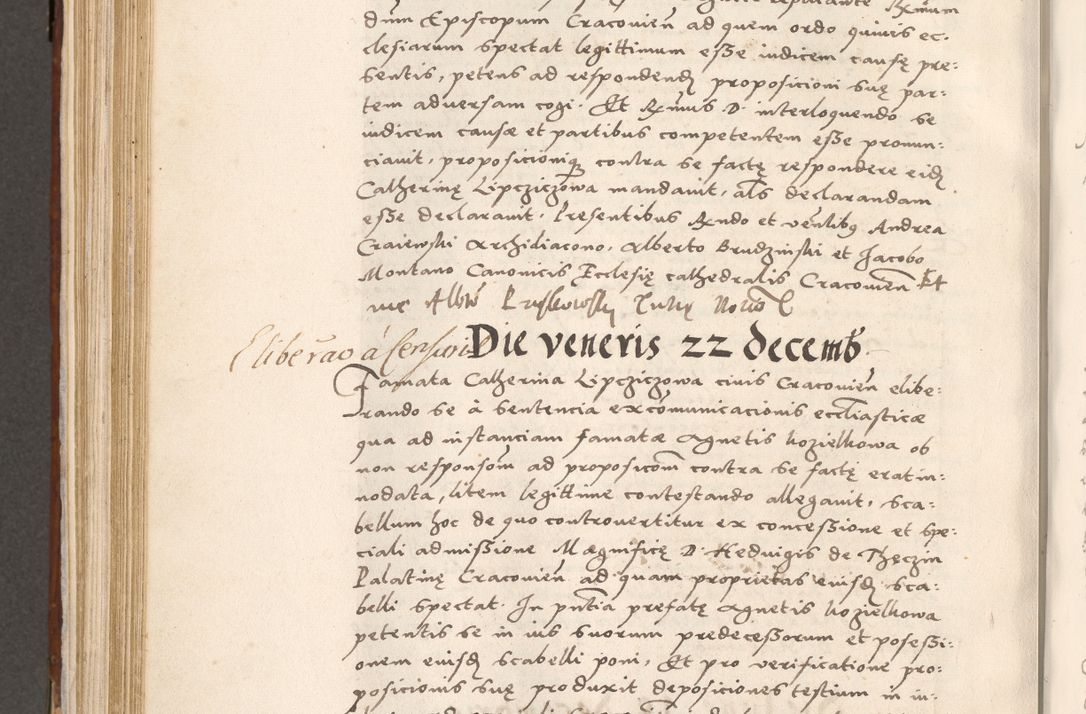 dum Episcopum Cracovien̄ ad quem ordo quivis ec:
clesiarum spectat legittimum esße iudicem causę pre:
sentis, petens ad respondend proposicioni suę par:
tem adversam cogi. Et Rm̄us D. interloquendo se
iudicem causæ et partibus competentem esße pronun:
ciauit, proposicioniq contra se factę respondere eid
Catherinę Lipcziczowa mandauit, als declarandam
esße declarauit. Presentibus Rndo et venlibg Andrea
Craiewski Archidiacono, Alberto Brudzinski et Jacobo
Montano Canonicis Ecclesię cathedralis Cracovien̄ Et
me
Eliberac̄o á Censuris
Die veneris 22 decemb
Famata Catherina Lipcziczowa ciuis Cracovien̄ elibe:
rando se à sentencia excōmunicacionis eccl̄iasticæ
qua ad instanciam famatæ Agnetis kozielkowa ob
non responsom̄ ad proposicom̄ contra se factę erat in:
nodata, litem legittime contestando allegauit, sca:
bellum hoc de quo controvertitur ex conceßione et spe:
ciali admißione Magnificę D. Hedvigis de Thęczin
Palatinę Cracovien̄ ad quam proprietas eiusd sca:
belli spectat. In pn̄tia prefatę Agnetis kozielkowa
petentis se in ius suorum predeceßorum et poseßi:
onem eiusd scabelli poni, Et pro verificatione pro:
posicionis suę produxit deposiciones testium in iu: